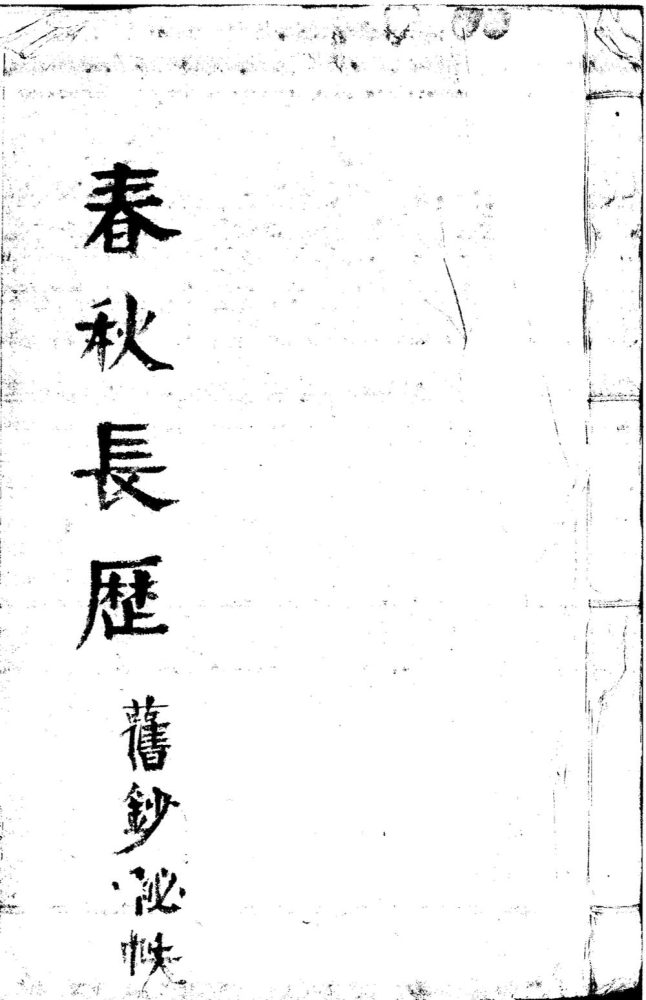 春秋長歴
舊鈔祕帙